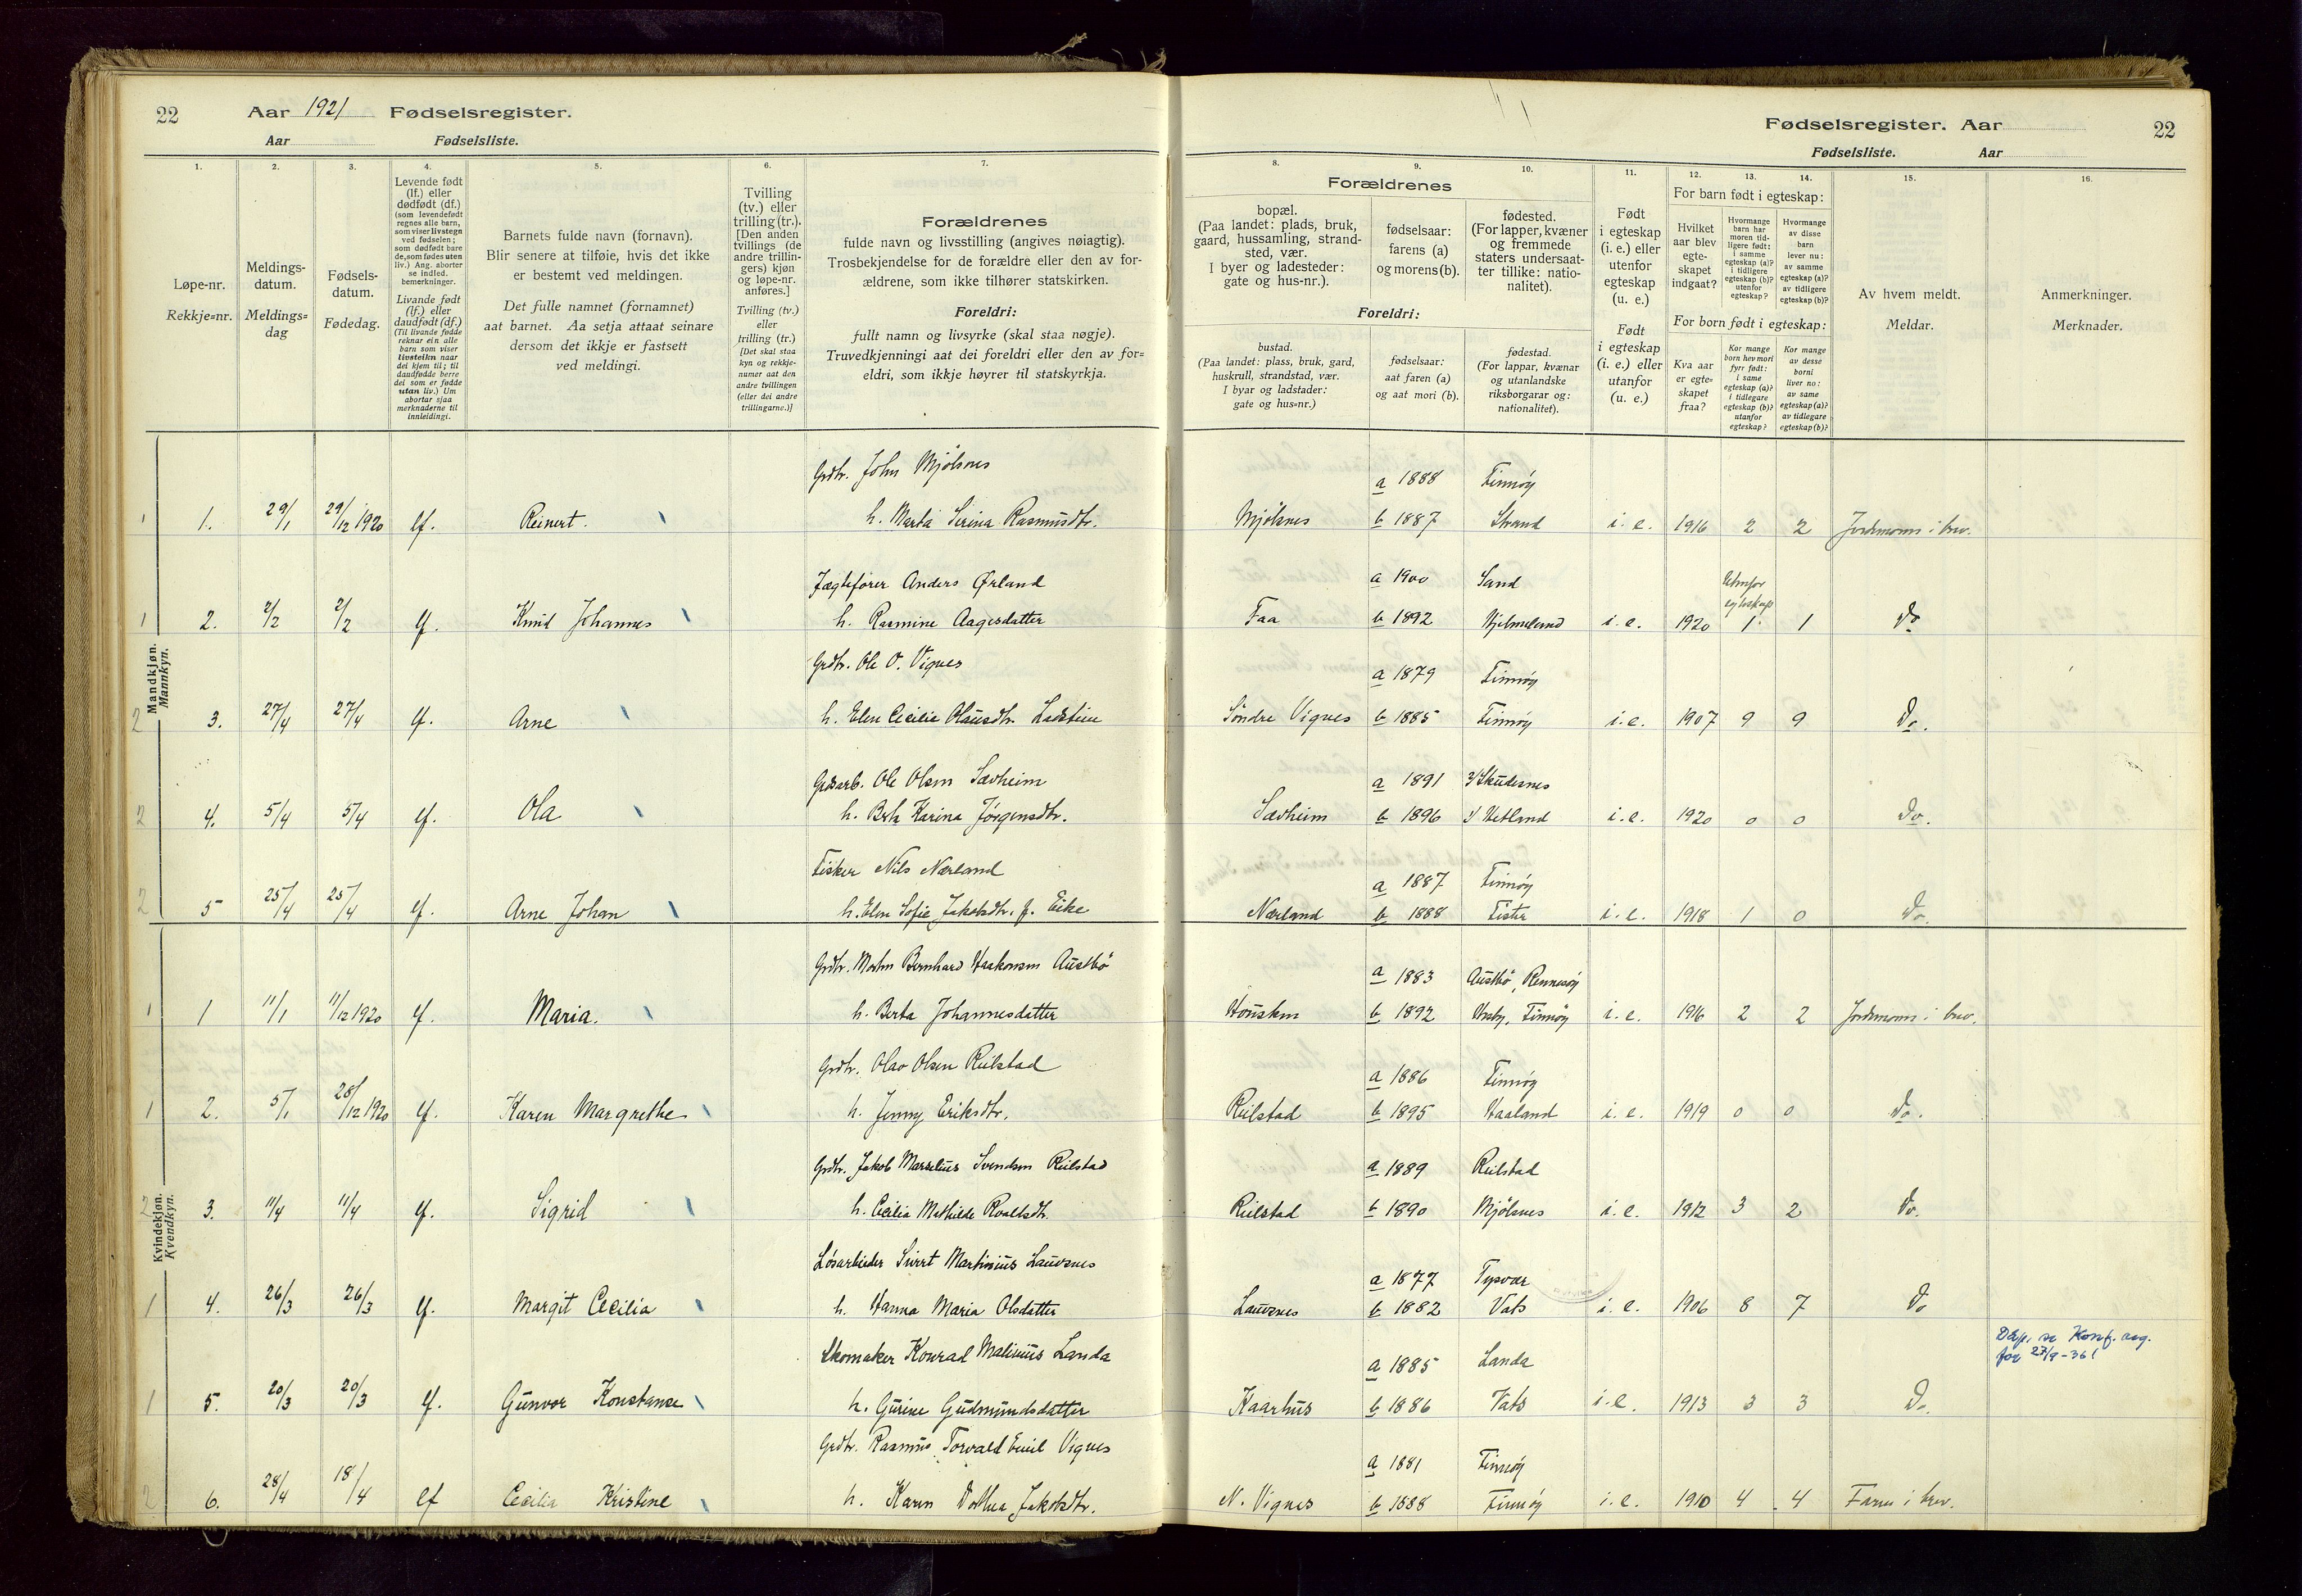 22
Aar 1921 Fødselsregister.
Aar Fødselsliste.
Fødselsregister. Aar
22
Fødselsliste. Aar
1.
Løpe-nr.
Rekkje=nr.
2.
Meldings-
datum.
Meldings=
dag
3.
Fødsels-
datum.
Fødedag.
4.
Levende født
(lf.) eller
dødfødt (df.)
(som levendefødt
regnes alle barn,
som viser livstegn
ved fødselen;
som dødfødt bare
de, som fødes uten
liv.) Ang. aborter
se indled.
bemerkninger.
Livande født
(lf.) eller
daudfødt (df.)
(Til livande fødde
reknar ein alle
barn som viser
livsteikn naar
dei kjem til; til
daudfødde berre
dei som er fødde
utan liv.) Um
abortar sjaa
merknaderne til
innleidingi.
5.
Barnets fulde navn (fornavn).
Blir senere at tilføie, hvis det ikke
er bestemt ved meldingen.
Det fulle namnet (fornamnet)
aat barnet. Aa setja attaat seinare
dersom det ikkje er fastsett
ved meldingi.
6.
Tvilling
(tv.) eller
trilling (tr.).
[Den anden
tvillings (de
andre trillin-
gers) kjøn
og løpe-nr.
anføres.]
Tvilling (tv.)
eller
trilling (tr.)
[Det skal staa
kyn og rekkje-
numer aat den
andre tvillingen
(eller dei andre
trillingarne.)]
7.
Forældrenes
fulde navn og livsstilling (angives nøiagtig).
Trosbekjendelse for de forældre eller den av for-
ældrene, som ikke tilhører statskirken.
Foreldri:
fullt namn og livsyrke (skal staa nøgje).
Truvedkjenningi aat dei foreldri eller den av for=
eldri, som ikkje høyrer til statskyrkja.
Forældrenes
8.
bopæl.
(Paa landet: plads, bruk,
gaard, hussamling, strand-
sted, vær.
I byer og ladesteder:
gate og hus-nr.).
9.
fødselsaar:
farens (a)
og morens (b).
10.
fødested.
(For lapper, kvæner
og fremmede
staters undersaat-
ter tillike: natio-
nalitet).
Foreldri:
bustad.
(Paa landet: plass, bruk, gard,
huskrull, strandstad, vær.
I byar og ladstader:
gate og hus-nr.)
fødselsaar:
aat faren (a)
og aat mori (b).
fødestad.
(For lappar, kvænar
og utanlandske
riksborgarar og:
nationalitet).
11.
Født
i egteskap
(i. e.) eller
utenfor
egteskap
(u. e.)
Født
i egteskap
(i. e.) eller
utanfor
(u. e.)
For barn født i egteskap:
12.
Hvilket
aar blev
egte-
skapet
indgaat?
13.
Hvormange
barn har
moren tid-
ligere født:
i samme
egteskap (a)?
i tidligere
egteskap (b)?
utenfor
egteskap?
14.
Hvormange
av disse
barn
lever nu:
av samme
egteskap (a)?
av tidligere
egteskap (b)?
For born født i egteskap:
Kva aar
er egte-
skapet
fraa?
Kor mange
born hev mori
fyrr født:
i same
egteskap (a)?
i tidlegare
egteskap (b)?
utanfor
egteskap?
Kor mange
av desse
borni
liver no:
av same
egteskap (a)?
av tidlegare
egteskap (b)?
15.
Av hvem meldt.
Meldar.
16.
Anmerkninger.
Merknader.
Mandkjøn.
Mannkyn.
Grdbr. John Mjölsnes a 1888 Finnöy
1 1. 29/1 29/12 1920 lf. Reinert. h. Marta Serina Rasmusdtr. Mjölsnes b 1887 Strand i. e. 1916 2 2 Jordmoren i brev.
Jægtefører Anders Ørland a 1900 Sand Utenfor egteskap
1 2. 2/2 2/2 lf. Knud Johannes h. Rasmine Aagesdatter Faa b 1892 Hjelmeland i. e. 1920 1. 1 Do
Grdbr. Ole O. Vignes a 1879 Finnöy
2 3. 27/4 27/4 lf. Arne h. Elen Cecilie Olausdtr. Ladstein Söndre Vignes b 1885 Finnöy i. e. 1907 9 9 Do.
Grdsarb. Ole Olsen Sævheim a 1891 Skudesnes
2 4. 5/4 5/4 lf. Ola h. Berta Karina Jørgensdtr. Sævheim b 1896 Hetland i. e. 1920 0 0 Do.
Fisker Nils Nærland a 1887 Finnöy
2 5 25/4 25/4 lf. Arne Johan h. Elen Sofie Jakobsdtr. f. Eike Nærland b 1888 Fister i. e. 1918 1 0 Do.
Kvindekjøn.
Kvendkyn.
Grdbr. Morten Bernhard Haakonsen Austbö a 1883 Austbö, Rennesöy
1 1 11/1 11/12 1920 lf. Maria. h. Berta Johannesdatter b 1892 Hesby, Finnöy i. e. 1916 2 2 Jordmoren i brev.
Grdbr. Olav Olsen Reilstad a 1886 Finnöy
1 2. 5/1 28/12 1920 lf. Karen Margrethe h. Jenny Eriksdtr. Reilstad b 1895 Haaland i. e. 1919 0 0 Do.
Grdbr. Jakob Marselius Svendsen Reilstad a 1889 Reilstad
2 3. 11/4 11/4 lf. Sigrid h. Cecilia Mathilde Roaldsdtr. Reilstad b 1890 Mjölsnes i. e. 1912 3 2 Do.
Løsarbeider Sivert Martinius Lauvsnes a 1877 Tysvær
1 4. 26/3 26/3 lf. Margit Cecilia h. Hanna Maria Olsdatter Lauvsnes b 1882 Vats i. e. 1906 8 7 Do
Skomaker Konrad Malinius Landa a 1885 Landa Dåp. se Konf. reg. for 27/9-36!
1 5. 20/3 20/3 lf. Gunvor Konstanse h. Gurine Gudmundsdatter Kaarhus b 1886 Vats i. e. 1913 3 3 Do.
Grdbr. Rasmus Torvald Emil Vignes a 1881 Finnöy
2 6. 28/4 18/4 lf Cecilia Kristine h. Karen Dothea Jakobsdtr. N. Vignes b 1888 Finnöy i. e. 1910 4 4 Faren i brev.